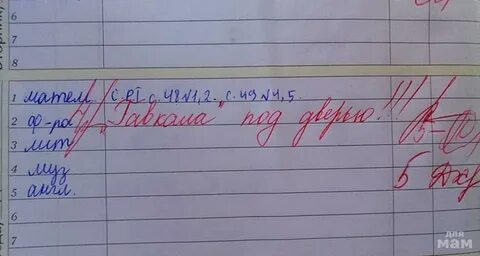 6
7
8
1 матем. с. 48 №1, 2. с. 49 №4, 5.
2 ф-ра "Гавкала" под дверью!!!
3 лит
4 муз 5
5 англ.
6
7
для
мам